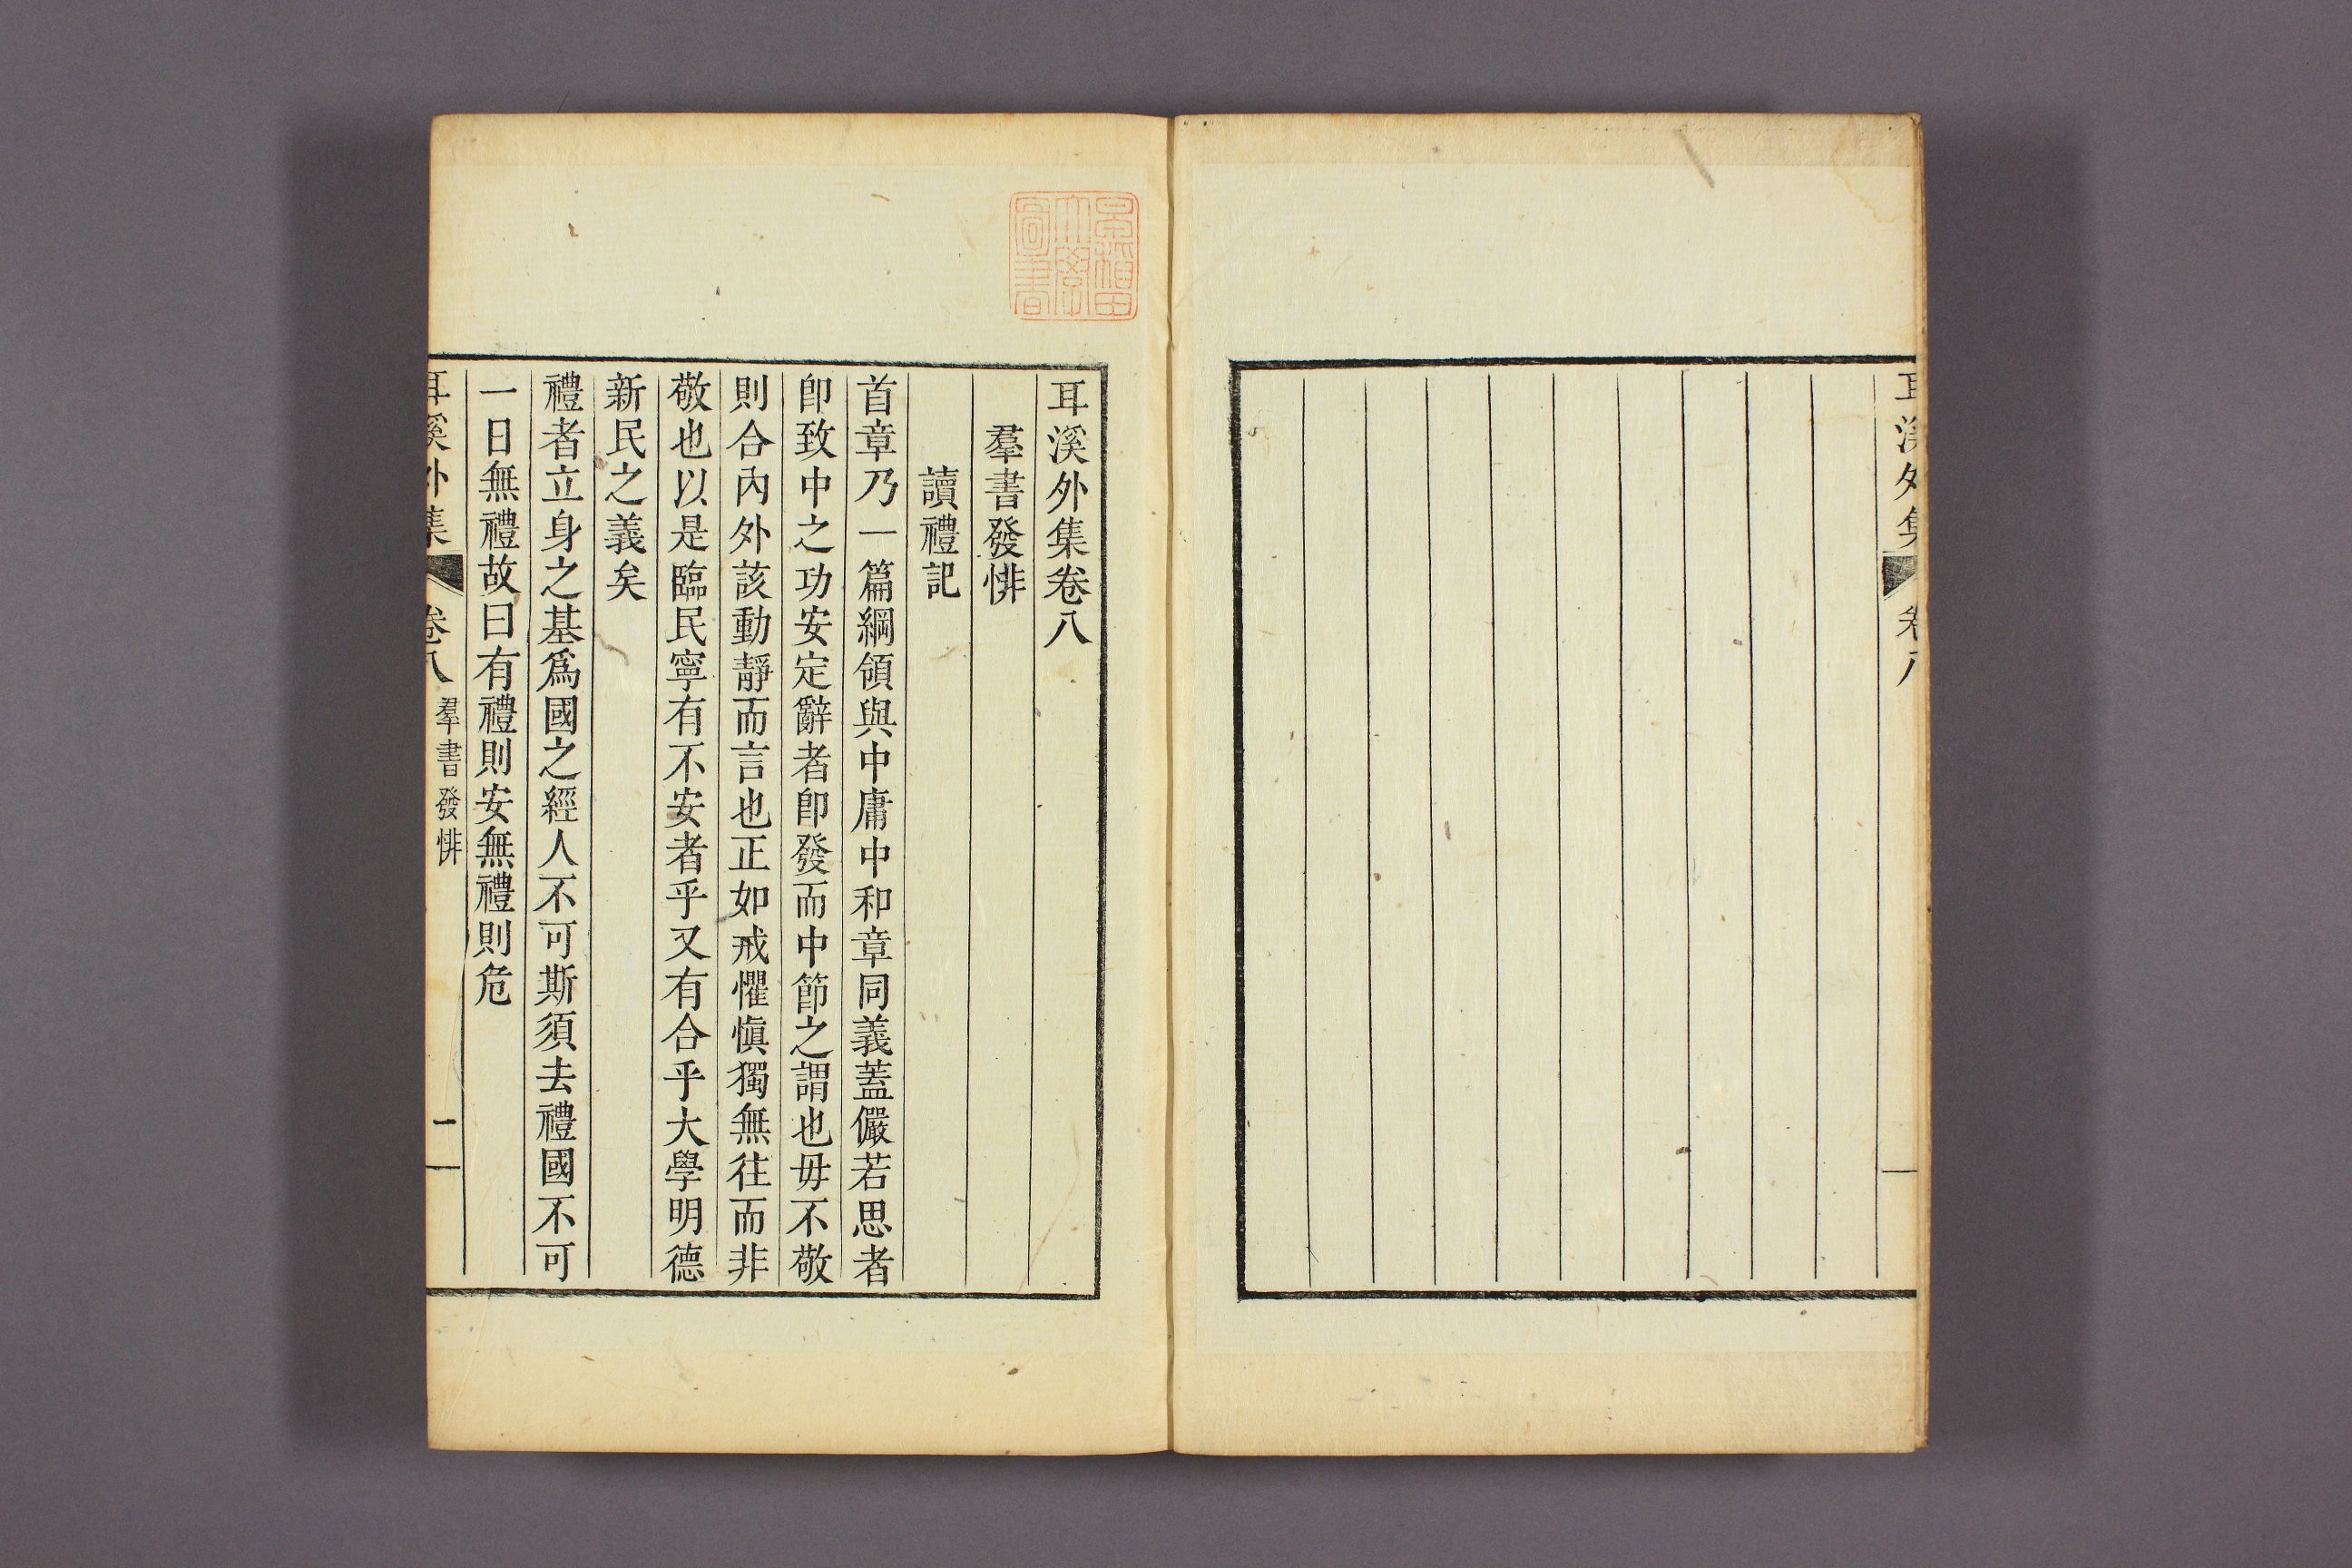 耳溪外集
卷八
早稻田
大學
圖書
耳溪外集卷八
羣書發悱
讀禮記
首章乃一篇綱領與中庸中和章同義蓋儼若思者
卽致中之功安定辭者卽發而中節之謂也毋不敬
則合內外該動靜而言也正如戒懼愼獨無往而非
敬也以是臨民寧有不安者乎又有合乎大學明德
新民之義矣
禮者立身之基爲國之經人不可斯須去禮國不可
一日無禮故曰有禮則安無禮則危
耳溪外集
卷八
羣書發悱
一